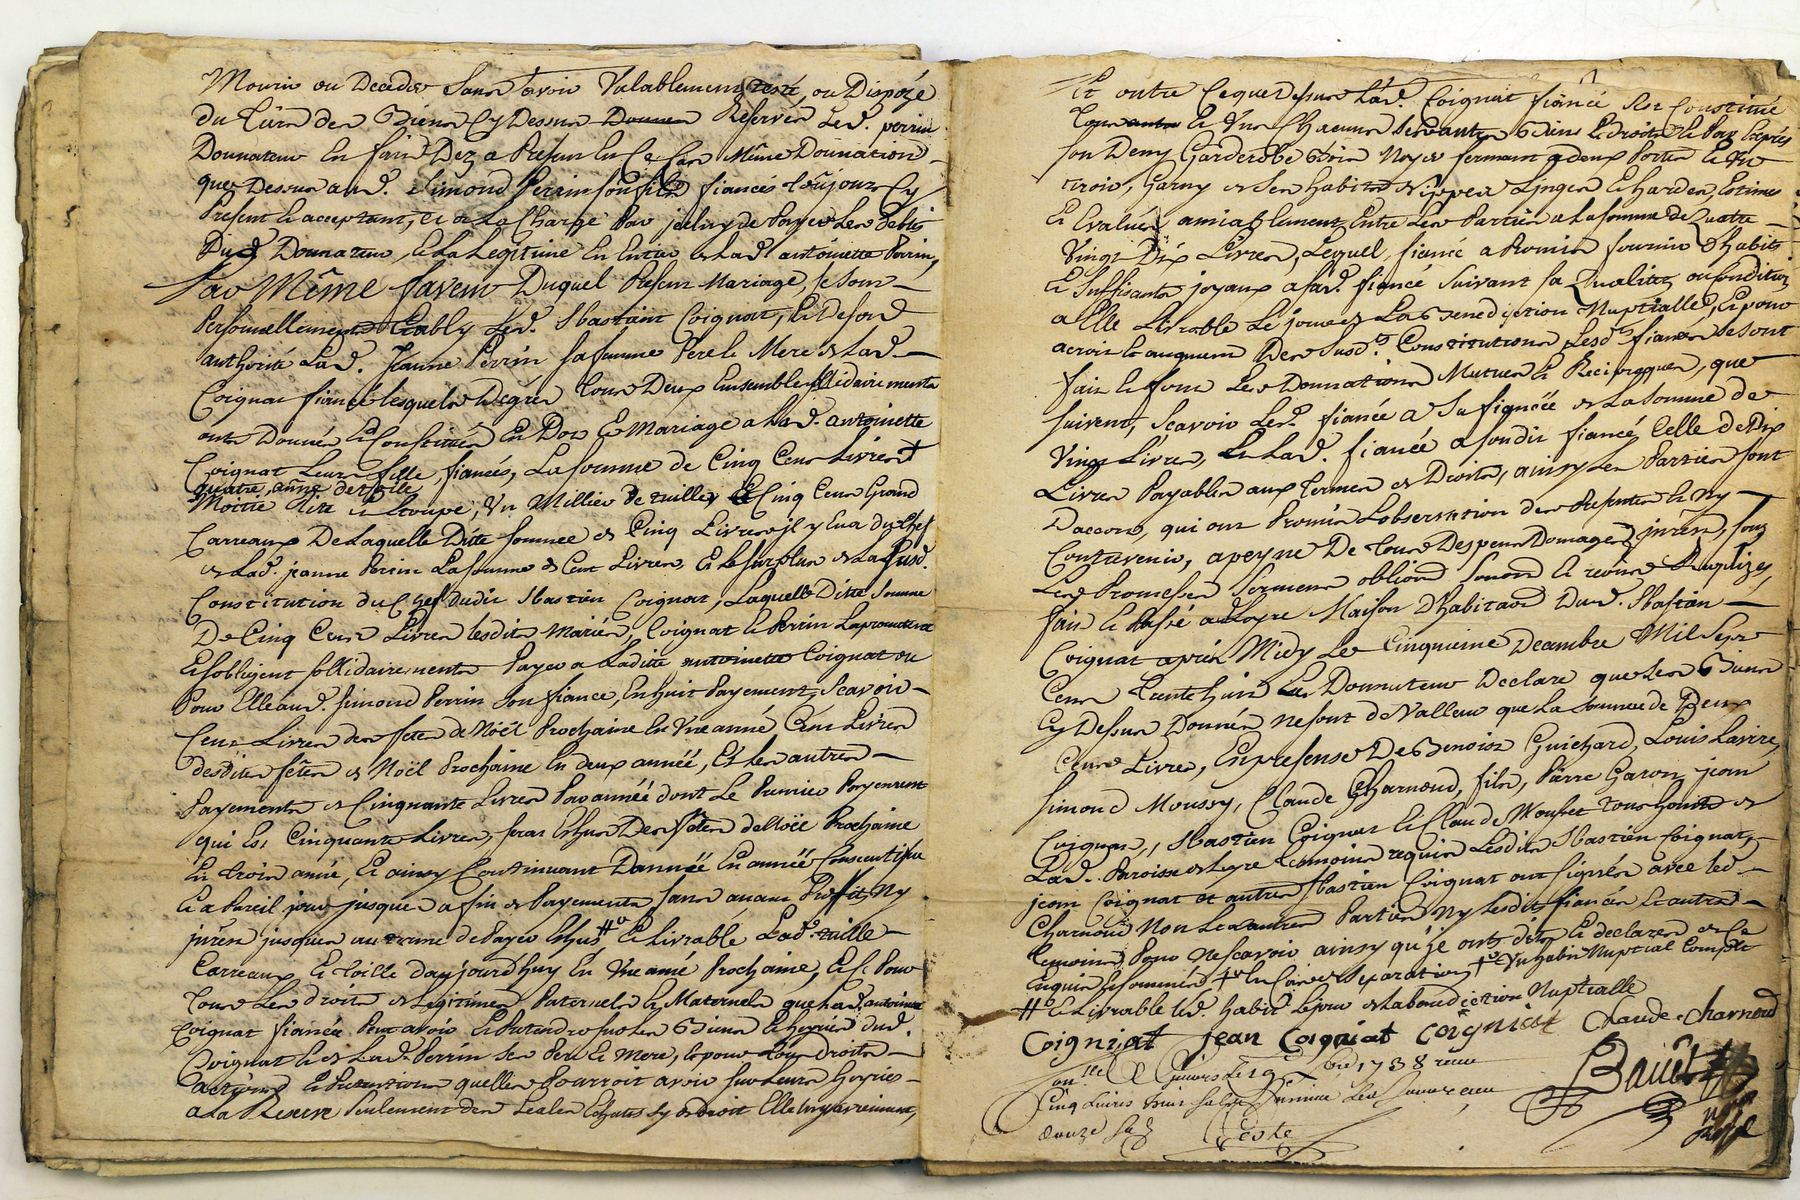 Mourir ou Deceder Sans avoir Valablement testé, ou Disposé
du Tiers des Biens Cy Dessus Reservés Led. perrin
Donnateur En fait Dez a Present En Ce Cas Même Donnation
que Dessus aud. Simond Perrin son fils fiancés toûjours Cy
Present Et acceptant, et a La Charge Par jceluy de Payer Les Debtes
Dud. Donnateur, Et La Legitime En Entier de Lad. antoinette Perrin,
En Même faveur Duquel Present Mariage, se sont
Personnellement Etably Led. Sbastain Coignat, Et De son
authorité Lad. Jeanne Perrin sa femme Pere Et Mere de Lad.
Coignat fiancé lesquels De gré Tous Deux Ensemble sollidairements
onts Donnés Et Constitués En Dot de Mariage a Lad. antoinette
Coignat Leurs fille, fiancés, La somme de Cinq Cens Livres
quatre anne de toille
Moitié Rite et Etoupe, Un Millier de tuilles Et Cinq Cens Grand
Carreaux De Laquelle Ditte somme de Cinq Livres il y En a du Chef
de Lad. jeanne Perrin La somme de Cent Livres Et Le surplus de La susd.
Constitution du Chef dudit Sbastien Coignat, Laquelle Ditte Somme
De Cinq Cens Livres lesdits Mariés Coignat Et Perrin La promettent
Et s'obligent sollidairements Payer a Ladite antoinette Coignat ou
Pour Elle aud. simond Perrin son fiance, En huit Payement, Scavoir
Cent Livres des fetes de Noël Prochaine En Une anné Cent Livres
desdites fêtes de Noël Prochaine En deux année, Et Les autres
Payements de Cinquante Livres Par année dont Le Premier Payement
qui Est Cinquante Livres, seras Eshus Des fêtes de Noël Prochaine
En trois anné, Et ainsy Continuant D'année En année Consecutive
Et a Pareil jour jusques a fin de Payements sans aucun Proffit Ny
jnrest jusques au terme de Payer Eshus Et Livrable Lad. tuille
Carreaux Et toille d'aujourdhuy En Une anné Prochaine, Et Pour
Tous Les droits de Legitimes Paternels Et Maternels que Lad. antoinette
Coignat fiancée Peut avoir Et Pretendre sur Les Biens Et hoyries dud.
Coignat Et de Lad. Perrin Ses Pere Et Mere, Et pour tous droits
actions Et Pretentions quelle Pourroit avoir sur Leurs hoyries
a La Reserve seulement des Lealer Echates sy de droit Elle luy avienent,
Et outre Ce que Dessus Lad. Coignat fiancé s'est Constitué
son Demy Garderobe Bois Noyer fermant a deux Portes Et
trois, Garny de ses habits Nippes Linges Et hardes, Estimés
Et Evalués amiablement Entre Les Parties a La somme de Quatre
Vingt Dix Livres, Lequel fiancé a Promis fournir D'habits
Et suffisants joyaux a sad. fiancé suivant sa Qualité ou Condition
a Elle Livrable Le jour de La Benediction Nuptialle, Et pour
acroist Et augment Des Susd. Constitutions Lesd. fiancés se sont
fait Et font Les Donnations Mutuels Et Reciproques, que
suivent, Scavoir Led. fiancée a Sa fiancée de La Somme de
Vingt Livres, Et Lad. fiancée a sondit fiancé Celle de Dix
Livres Payables aux Termes de Droits, ainsy Les Parties sont
D'accord, qui ont Promis L'observation des Presentes Et Ny
Contrevenir, a peyne De tous Despens Domages jnrêst, sous
Les Promesses Serments obliond Soumd Et renond
fait Et Passé audloyre Maison D'habitaon Dud. Sbastian
Coignat après Midy Le Cinquieme Decembre Mil Sept
Cens trente huit Led Donnateur Declare que Les Biens
Cy Dessus Donnés ne sont de Valleur que La Somme de Deux
Cens Livres, En presense De Benoist Guichard, Louis Lavire,
Simond Moussy, Claude Charnoud, fils, Pierre Garon, jean
Coignat, Sbastien Coignat Et Claude Mousset tous hoints de
Lad. Paroisse de Loyre temoins requis Lesdits Sbastien Coignat,
jean Coignat et autres Sbastien Coignat ont signés avec led.
Charnoud Non Les autres Parties Ny Lesdits fiancés Et autres
temoins, Pour Ne scavoir ainsy qu'jl onts dits Et declarer de Ce
Enquis Et sommés En faire Reparation Un habit Nuptial Complet
# Et Livrable Led. habit Le jour de La benediction Nuptialle
Coigniat jean Coigniat Coigniat Claude Charnoud
onlle a Givors Le 19 xbre 1738 receu
Cinq Livres
douze Sols Teste